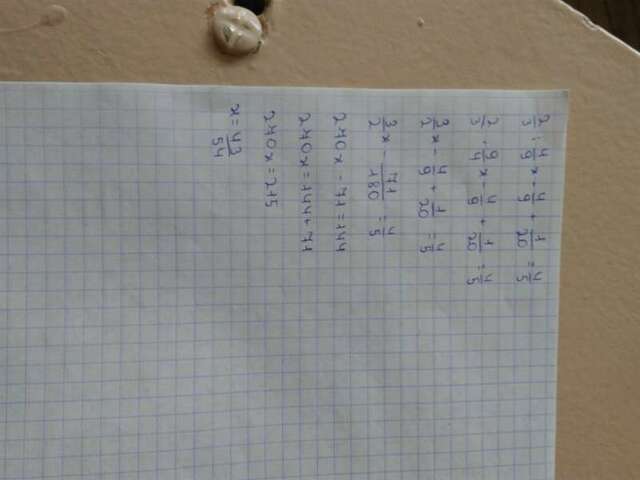 2/3 : 4/9 x - 4/9 + 1/20 = 4/5
2/3 · 9/4 x - 4/9 + 1/20 = 4/5
3/2 x - 4/9 + 1/20 = 4/5
3/2 x - 71/180 = 4/5
270x - 71 = 144
270x = 144 + 71
270x = 215
x = 43/54